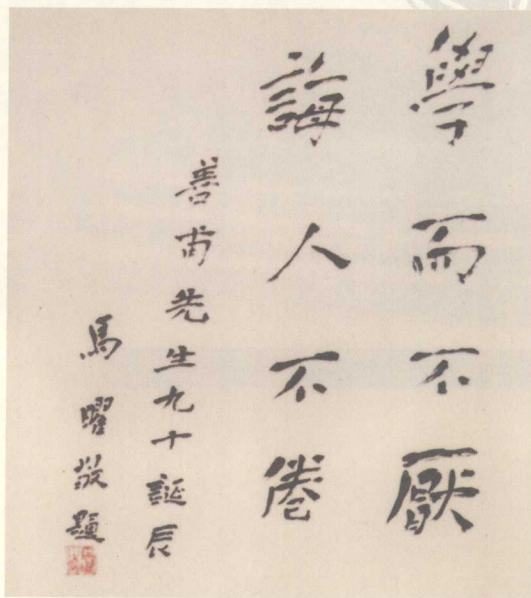 學而不厭
誨人不倦
善甫先生九十誕辰
馬曜敬題